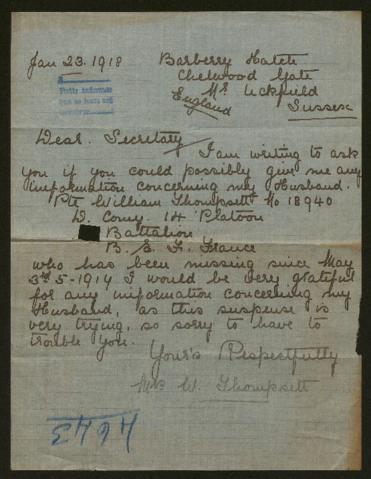 Jan 23. 1918
Barberry Hatch
Chelwood Gate
Nr Uckfield
England
Sussex
Dear. Secretary
I am writing to ask
you if you could possibly give me any
information concerning my Husband.
Pte William Thompsett No 18940
D. Comy. 14 Platoon
Battalion
B. E. F. France
who has been missing since May
3rd 5-1917 I would be very grateful
for any information concerning my
Husband, as this suspense is
very trying, so sorry to have to
trouble you.
Your's Respectfully
Mrs W. Thompsett